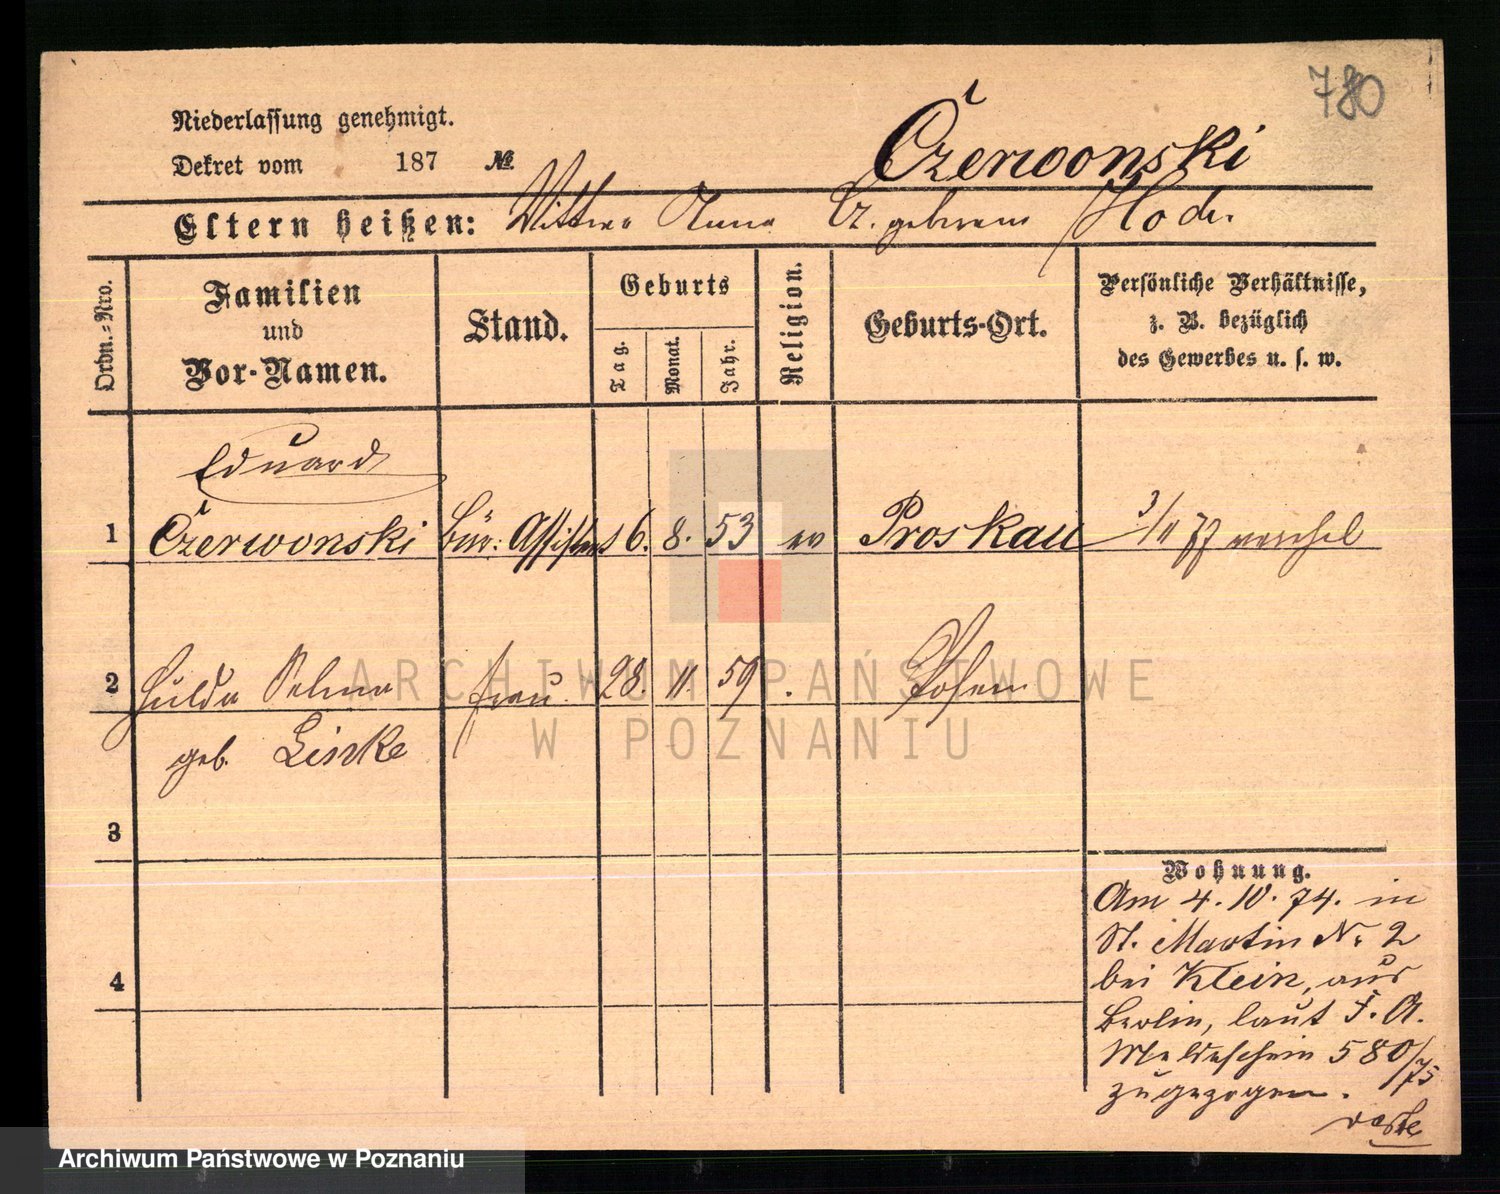 780
Niederlassung genehmigt.
Dekret vom 187 №
Czerwonski
Eltern heißen: Wittwe Anna Cz. geborene
Ordn.-Nro.
Familien und Vor-Namen.
Stand.
Geburts
Tag.
Monat.
Jahr.
Religion.
Geburts-Ort.
Persönliche Verhältnisse,
z. B. bezüglich
des Gewerbes u. s. w.
Eduard
1 Czerwonski Bür: Assistent 6. 8. 53 ev Proskau 3/11 77 verehel
2 Hulda Selma Frau 28. 11. 59 Posen
geb. Linke
3
4
Wohnung.
Am 4. 10. 74. in
St. Martin Nr 2
bei Klein, aus
Berlin, laut F. A.
Meldeschein 580/75
zugezogen.
ARCHIWUM PAŃSTWOWE
W POZNANIU
Archiwum Państwowe w Poznaniu